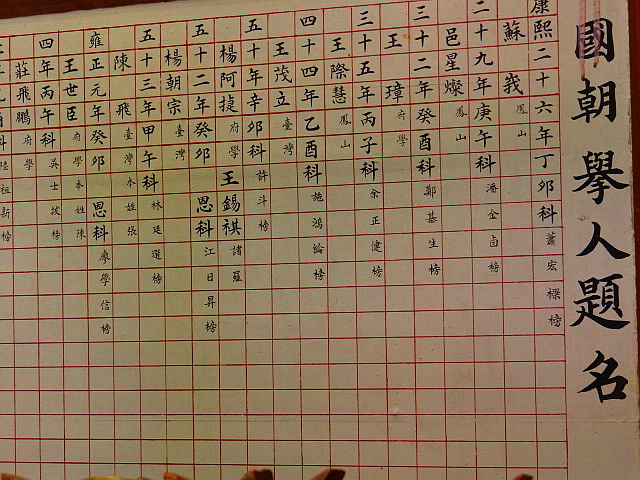 國朝舉人題名
康熙二十六年丁卯科 蕭宏樑榜
蘇峩 鳳山
二十九年庚午科 潘金卣榜
邑星燦 鳳山
三十二年癸酉科 鄭基生榜
王璋 府學
三十五年丙子科 余正健榜
王際慧 鳳山
四十四年乙酉科 施鴻論榜
王茂立 臺灣
五十年辛卯科 許斗榜
楊阿捷 府學 王錫祺 諸羅
五十二年癸卯 恩科 江日昇榜
楊朝宗 臺灣
五十三年甲午科 林廷選榜
陳飛 臺灣 本姓張
雍正元年癸卯 恩科 廖學信榜
王世臣 府學 本姓陳
四年丙午科 吳士拔榜
莊飛鵬 府學
酉科 陸祖新榜